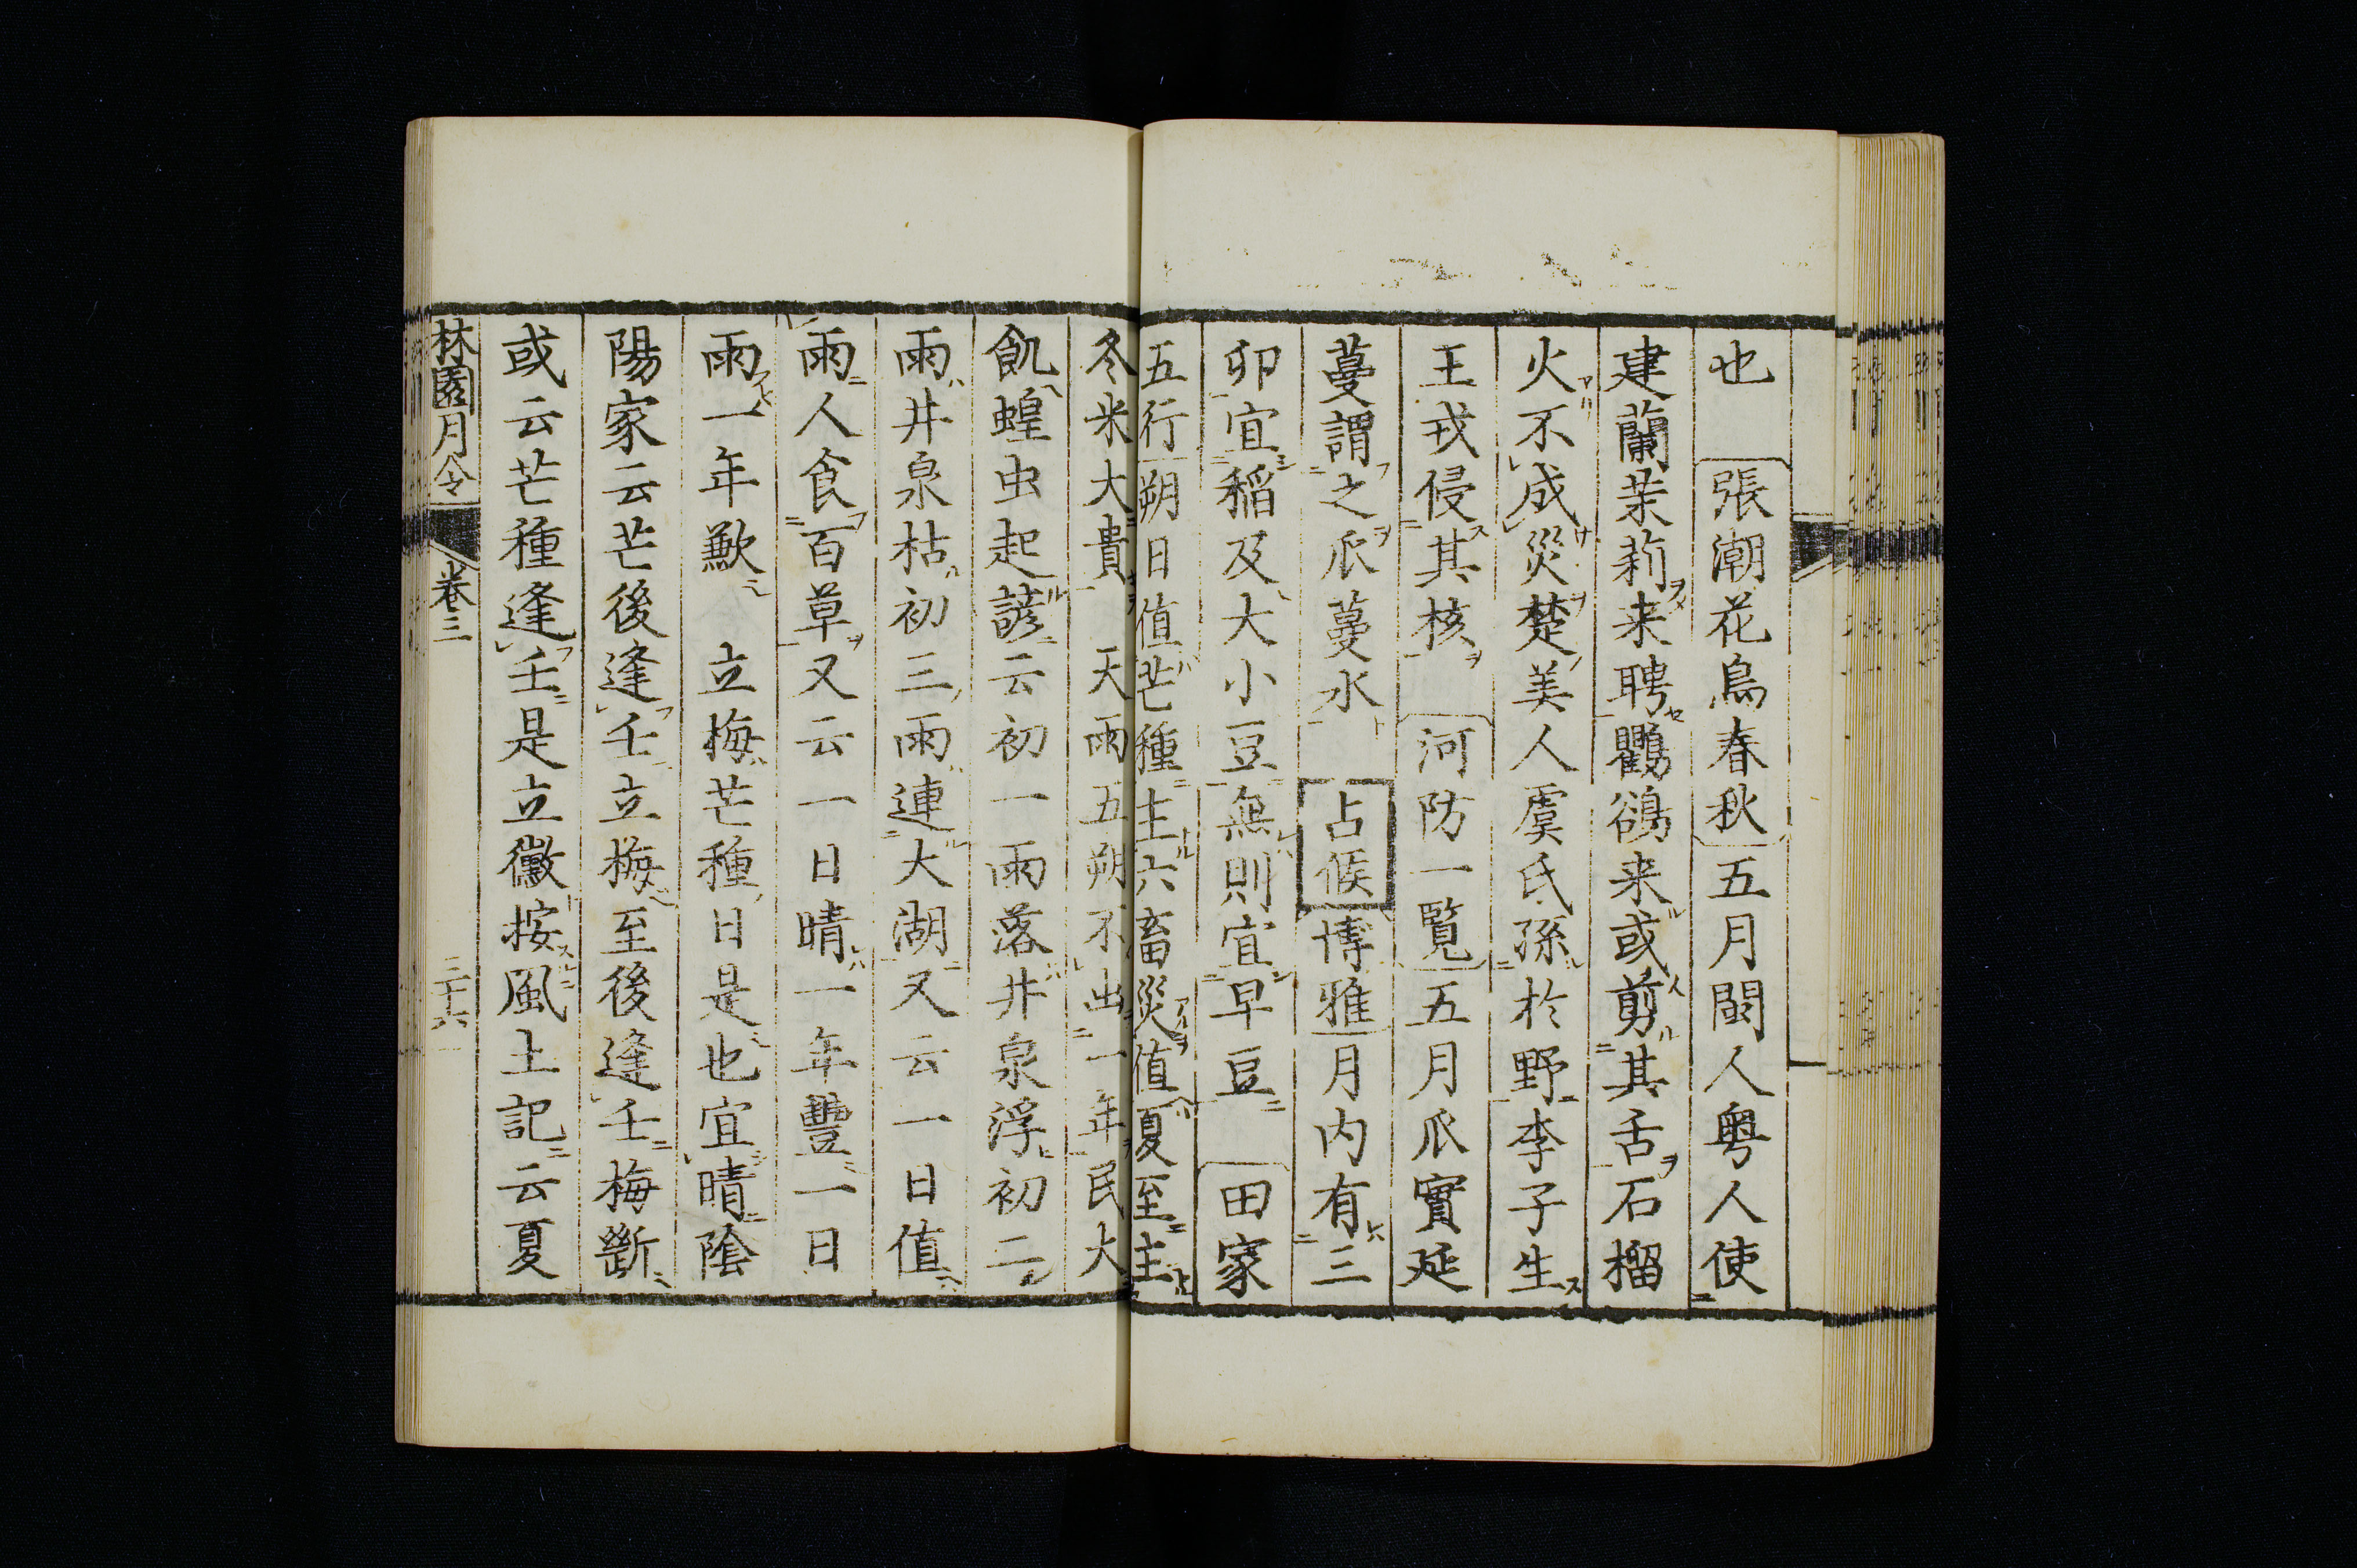 也　張潮花鳥春秋五月閩人粤人使
建蘭茉莉来聘鸜鵒来或剪其舌石榴
火不成災楚美人虞氏孫於野李子生
王戎侵其核　河防一覧五月瓜實延
蔓謂之瓜蔓水　占候博雅月内有三
卯宜稲及大小豆無則宜早豆　田家
五行朔日值芒種主六畜災值夏至主
冬米大貴　天雨五朔不出一年民大
飢蝗虫起諺云初一雨落井泉浮初二
雨井泉枯初三雨連大湖又云一日值
雨人食百草又云一日晴一年豐一日
雨一年歉　立梅芒種日是也宜晴陰
陽家云芒後逢壬立梅至後逢壬梅斷
或云芒種逢壬是立黴按風土記云夏
林園月令　卷三　三十六